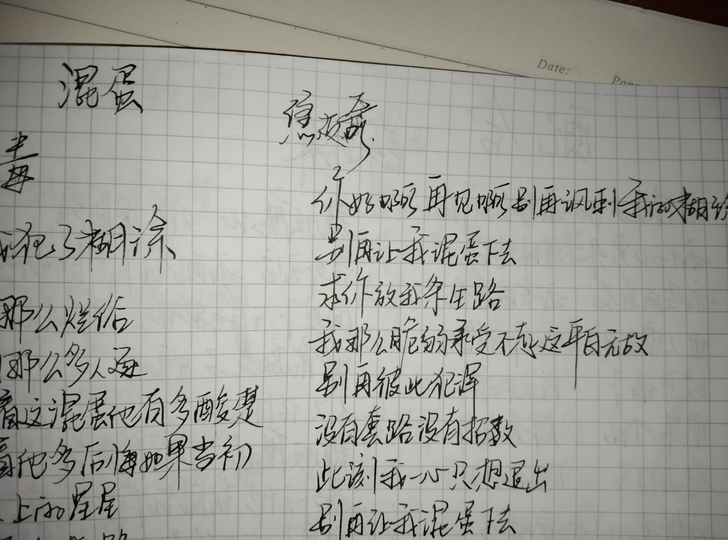 Date:
Page
混蛋
毒
犯了糊涂
那么烂俗
那么多人
看这混蛋他有多酸楚
看他多后悔如果当初
上的星星
你好啊再见啊别再讽刺我的糊涂
别再让我混蛋下去
求你放我条生路
我那么脆弱承受不起这平白无故
别再彼此犯浑
没有套路没有招数
此刻我一心只想退出
别再让我混蛋下去